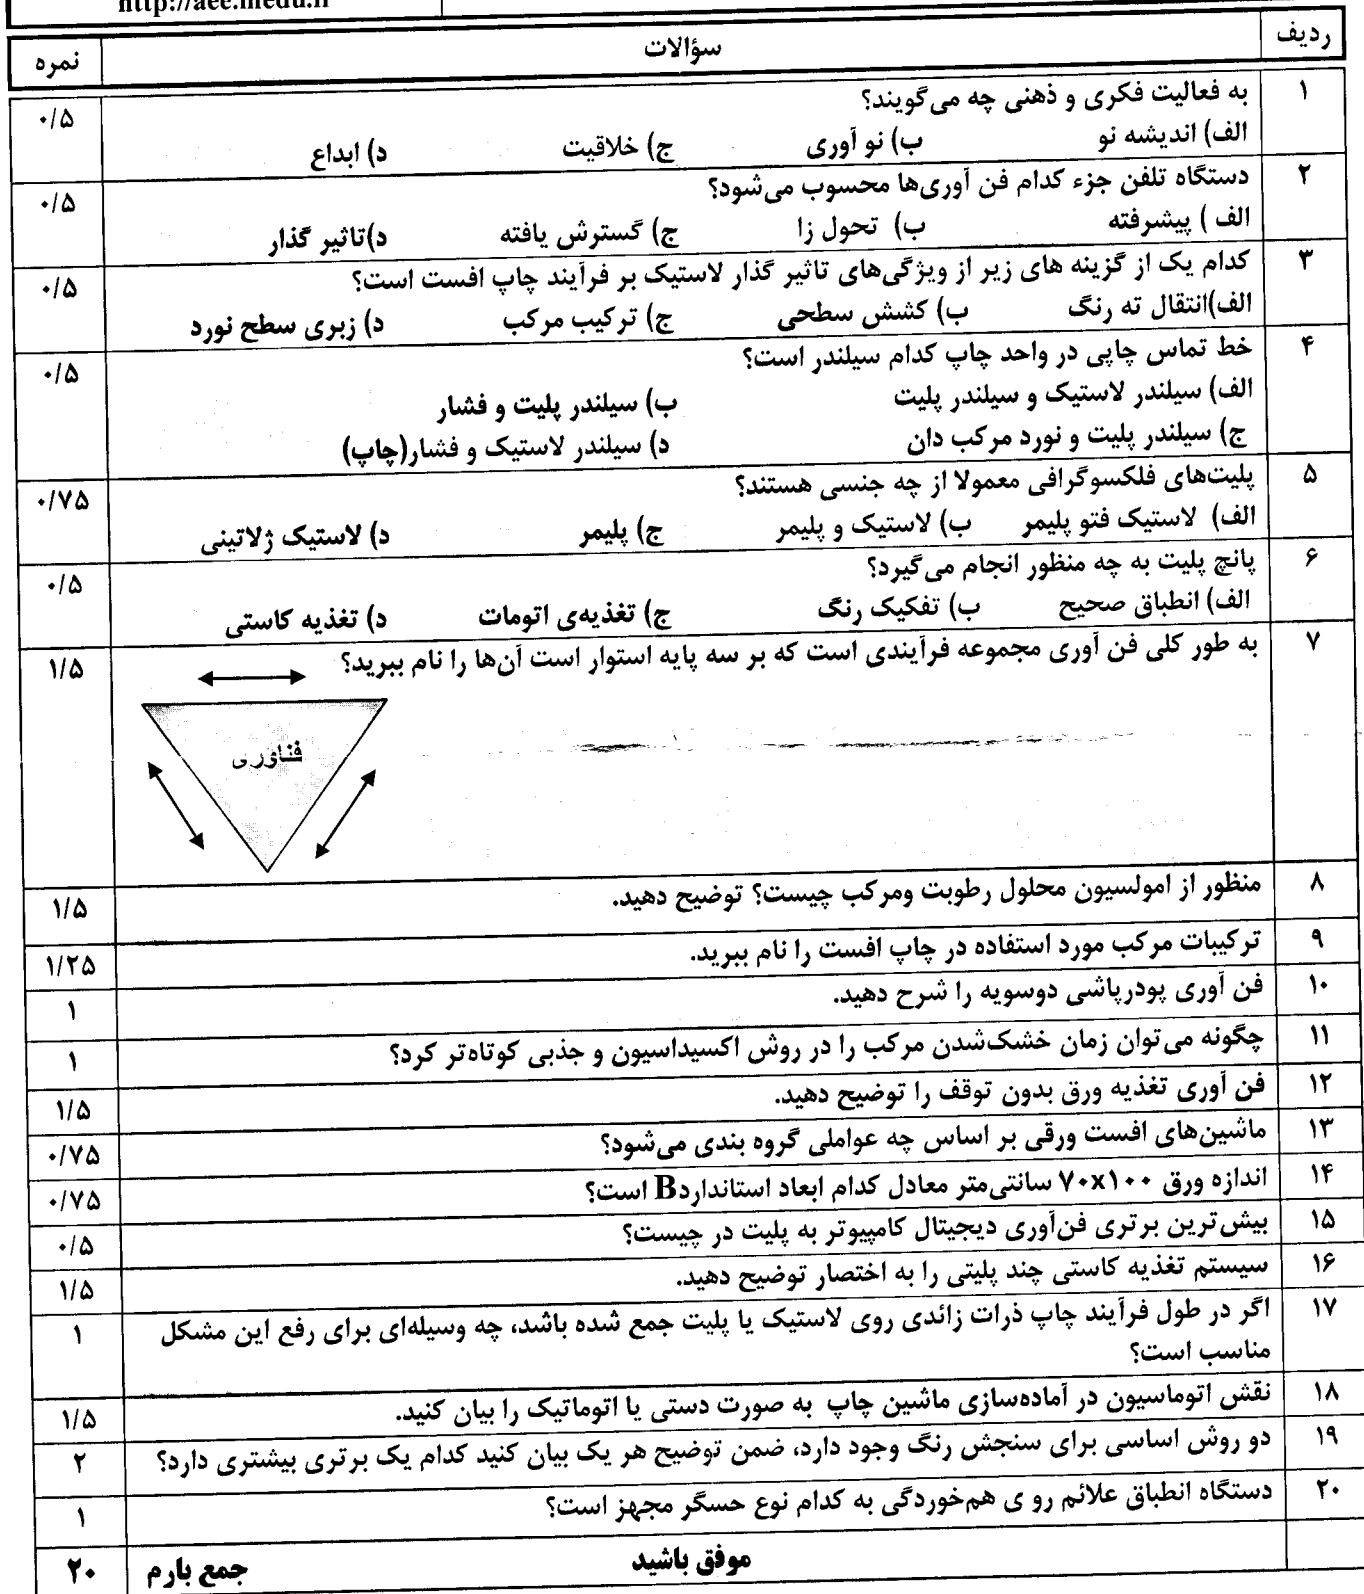 http://aee.medu.ir
ردیف سؤالات نمره
۱ به فعالیت فکری و ذهنی چه می‌گویند؟ ۰/۵
الف) اندیشه نو ب) نو آوری ج) خلاقیت د) ابداع
۲ دستگاه تلفن جزء کدام فن آوری‌ها محسوب می‌شود؟ ۰/۵
الف ) پیشرفته ب) تحول زا ج) گسترش یافته د)تاثیر گذار
۳ کدام یک از گزینه های زیر از ویژگی‌های تاثیر گذار لاستیک بر فرآیند چاپ افست است؟ ۰/۵
الف)انتقال ته رنگ ب) کشش سطحی ج) ترکیب مرکب د) زبری سطح نورد
۴ خط تماس چاپی در واحد چاپ کدام سیلندر است؟ ۰/۵
الف) سیلندر لاستیک و سیلندر پلیت ب) سیلندر پلیت و فشار
ج) سیلندر پلیت و نورد مرکب دان د) سیلندر لاستیک و فشار(چاپ)
۵ پلیت‌های فلکسوگرافی معمولا از چه جنسی هستند؟ ۰/۷۵
الف) لاستیک فتو پلیمر ب) لاستیک و پلیمر ج) پلیمر د) لاستیک ژلاتینی
۶ پانچ پلیت به چه منظور انجام می‌گیرد؟ ۰/۵
الف) انطباق صحیح ب) تفکیک رنگ ج) تغذیه‌ی اتومات د) تغذیه کاستی
۷ به طور کلی فن آوری مجموعه فرآیندی است که بر سه پایه استوار است آن‌ها را نام ببرید؟ ۱/۵
فناوری
۸ منظور از امولسیون محلول رطوبت ومرکب چیست؟ توضیح دهید. ۱/۵
۹ ترکیبات مرکب مورد استفاده در چاپ افست را نام ببرید. ۱/۲۵
۱۰ فن آوری پودرپاشی دوسویه را شرح دهید. ۱
۱۱ چگونه می‌توان زمان خشک‌شدن مرکب را در روش اکسیداسیون و جذبی کوتاه‌تر کرد؟ ۱
۱۲ فن آوری تغذیه ورق بدون توقف را توضیح دهید. ۱/۵
۱۳ ماشین‌های افست ورقی بر اساس چه عواملی گروه بندی می‌شود؟ ۰/۷۵
۱۴ اندازه ورق ۷۰x۱۰۰ سانتی‌متر معادل کدام ابعاد استانداردB است؟ ۰/۷۵
۱۵ بیش‌ترین برتری فن‌آوری دیجیتال کامپیوتر به پلیت در چیست؟ ۰/۵
۱۶ سیستم تغذیه کاستی چند پلیتی را به اختصار توضیح دهید. ۱/۵
۱۷ اگر در طول فرآیند چاپ ذرات زائدی روی لاستیک یا پلیت جمع شده باشد، چه وسیله‌ای برای رفع این مشکل ۱
مناسب است؟
۱۸ نقش اتوماسیون در آماده‌سازی ماشین چاپ به صورت دستی یا اتوماتیک را بیان کنید. ۱/۵
۱۹ دو روش اساسی برای سنجش رنگ وجود دارد، ضمن توضیح هر یک بیان کنید کدام یک برتری بیشتری دارد؟ ۲
۲۰ دستگاه انطباق علائم رو ی هم‌خوردگی به کدام نوع حسگر مجهز است؟ ۱
موفق باشید جمع بارم ۲۰